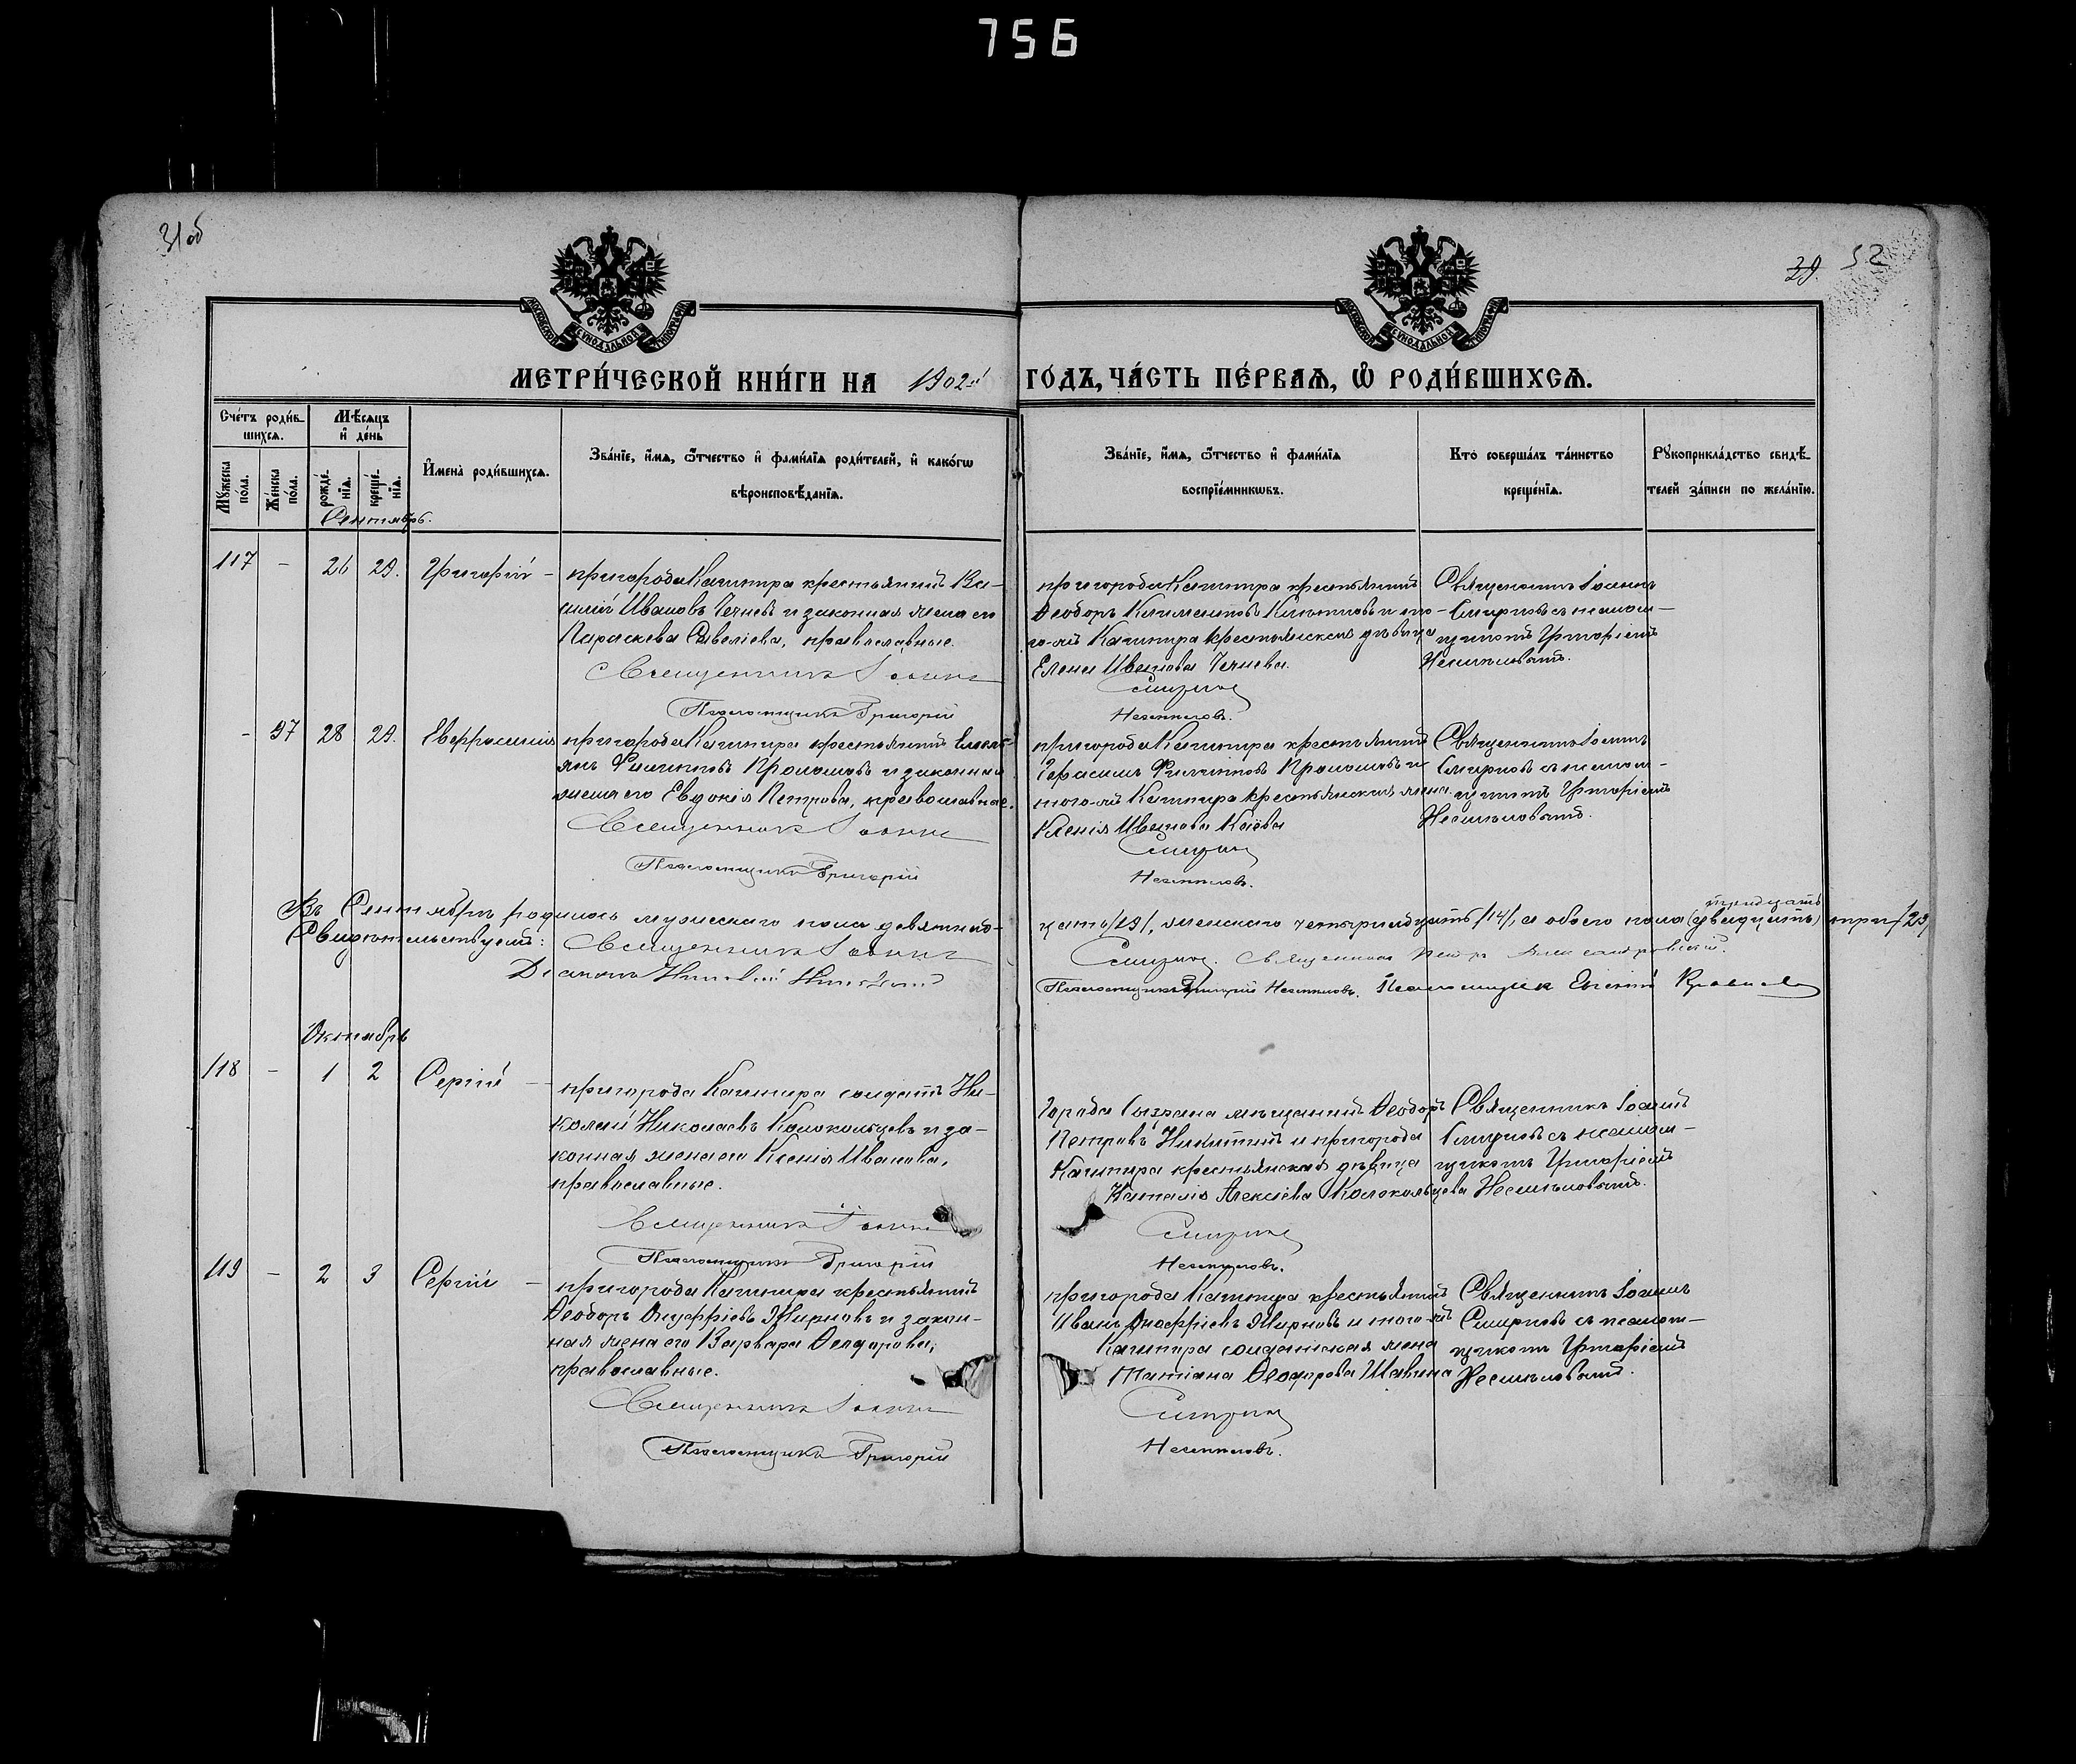 756
31об
29. 52
МЕТРИ́ЧЕСКОЙ КНИ́ГИ НА 1902й ГО́ДЪ, ЧА́СТЬ ПЕ́РВАЯ, Ѡ РОДИ́ВШИХСЯ.
Сче́тъ роди́в-
шихся.
Мѣ́сяцъ
и҆ де́нь
Мꙋ́жеска по́ла.
Же́нска по́ла.
рожде́нїя.
креще́нїя.
И҆мена̀ роди́вшихся.
Зва́нїе, и҆́мя, ѻ҆́тчество и҆ фами́лїя роди́телей, и҆ како́гѡ
вѣроисповѣ́данїя.
Зва́нїе, и҆́мя, ѻ҆́тчество и҆ фами́лїя
воспрїе́мникѡвъ.
Кто̀ соверша́лъ та́инство
креще́нїя.
Рꙋкоприкла́дство свидѣ́-
телей за́писи по жела́нїю.
Сентябрь.
117 - 26 29. Григорій -
пригорода Кашпира крестьянинъ Ва-
силій Ивановъ Чечневъ и законная жена его
Параскева Савеліева, православные.
Священникъ Іоаннъ
Псаломщикъ Григорій
пригорода Кашпира крестьянинъ
Ѳеодоръ Климентовъ и того-
го-же Кашпира крестьянская дѣвица
Елена Иванова Чечнева.
Смирновъ
Несмѣловъ.
Священникъ Іоаннъ
Смирновъ съ псалом-
щикомъ Григоріемъ
Несмѣловымъ.
- 97 28 29. Евфросинія
пригорода Кашпира крестьянинъ Емель-
янъ Филипповъ и законная
жена его Евдокія Петрова, православные.
Священникъ Іоаннъ
Псаломщикъ Григорій
пригорода Кашпира крестьянинъ
Герасимъ Филипповъ и
того-же Кашпира крестьянская жена
Ксенія Иванова Каіева
Смирновъ
Несмѣловъ.
Священникъ Іоаннъ
Смирновъ съ псалом-
щикомъ Григоріемъ
Несмѣловымъ.
Въ Сентябрѣ родилось мужескаго пола девятнад-
цать /19/, женскаго четырнадцать /14/, а обоего пола (двадцать) тридцать три /23/
Свидѣтельствуемъ: Священникъ Іоаннъ
Смирновъ. Священникъ Петръ Александровскій.
Діаконъ
Псаломщикъ Григорій Несмѣловъ. Псаломщикъ Евгеній
Октябрь
118 - 1 2 Сергій -
пригорода Кашпира солдатъ Ни-
колай Николаевъ Колокольцевъ и за-
конная жена его Ксенія Иванова,
православные.
Священникъ Іоаннъ
Псаломщикъ Григорій
Города Сызрана мѣщанинъ Ѳеодоръ
Петровъ Никитинъ и пригорода
Кашпира крестьянская дѣвица
Наталія Алексіева Колокольцева
Смирновъ
Несмѣловъ.
Священникъ Іоаннъ
Смирновъ съ псалом-
щикомъ Григоріемъ
Несмѣловымъ.
119 - 2 3 Сергій -
пригорода Кашпира крестьянинъ
Ѳеодоръ Онуфріевъ Жирновъ и закон-
ная жена его Варвара Ѳеодорова,
православные.
Священникъ Іоаннъ
Псаломщикъ Григорій
пригорода Кашпира крестьянинъ
Иванъ Жирновъ и того-же
Кашпира солдатская жена
Татіана Ѳеодорова Шавина
Смирновъ
Несмѣловъ.
Священникъ Іоаннъ
Смирновъ съ псалом-
щикомъ Григоріемъ
Несмѣловымъ.